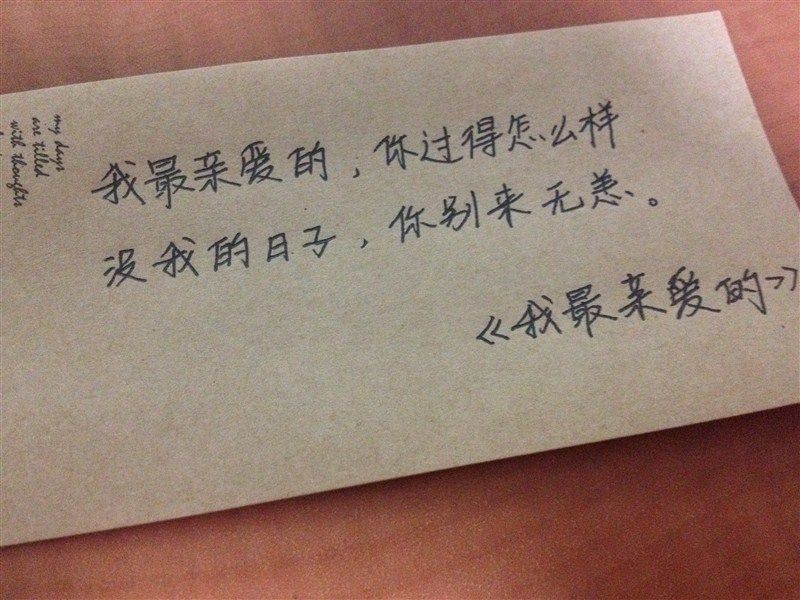 my days
are filled
with thoughts
我最亲爱的，你过得怎么样
没我的日子，你别来无恙。
《我最亲爱的》